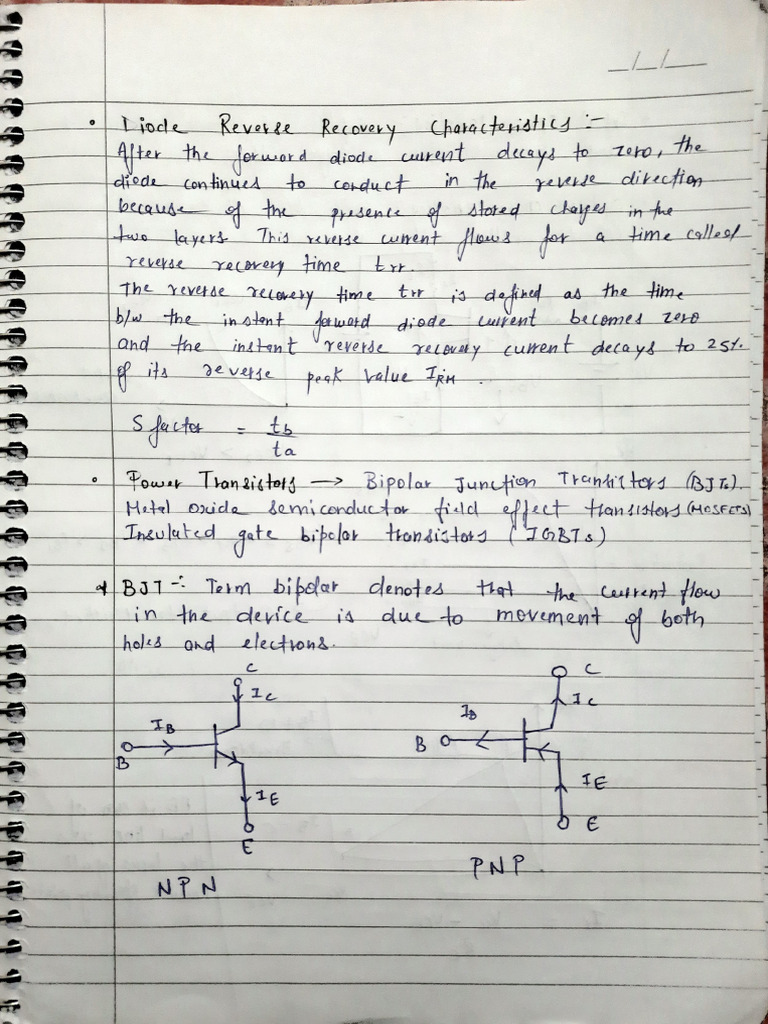 _/_/__
• Diode Reverse Recovery Characteristics :-
After the forward diode current decays to zero, the
diode continues to conduct in the reverse direction
because of the presence of stored charges in the
two layers. This reverse current flows for a time called
reverse recovery time trr.
The reverse recovery time trr is defined as the time
b/w the instant forward diode current becomes zero
and the instant reverse recovery current decays to 25%
of its reverse peak value IRM.
S factor = tb
ta
• Power Transistors → Bipolar Junction Transistors (BJTs).
Metal oxide semiconductor field effect transistors (MOSFETs)
Insulated gate bipolar transistors (IGBTs)
BJT -: Term bipolar denotes that the current flow
in the device is due to movement of both
holes and electrons.
C C
IC IC
IB IB
B B
IE IE
E E
NPN PNP.